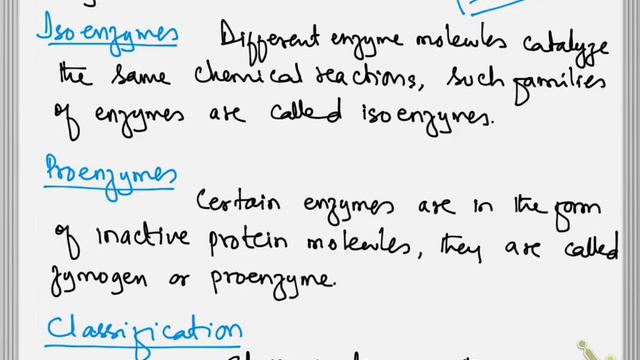 Isoenzymes Different enzyme molecules catalyze
the same chemical reactions, such families
of enzymes are called isoenzymes.
Proenzymes
Certain enzymes are in the form
of inactive protein molecules, they are called
zymogen or proenzyme.
Classification